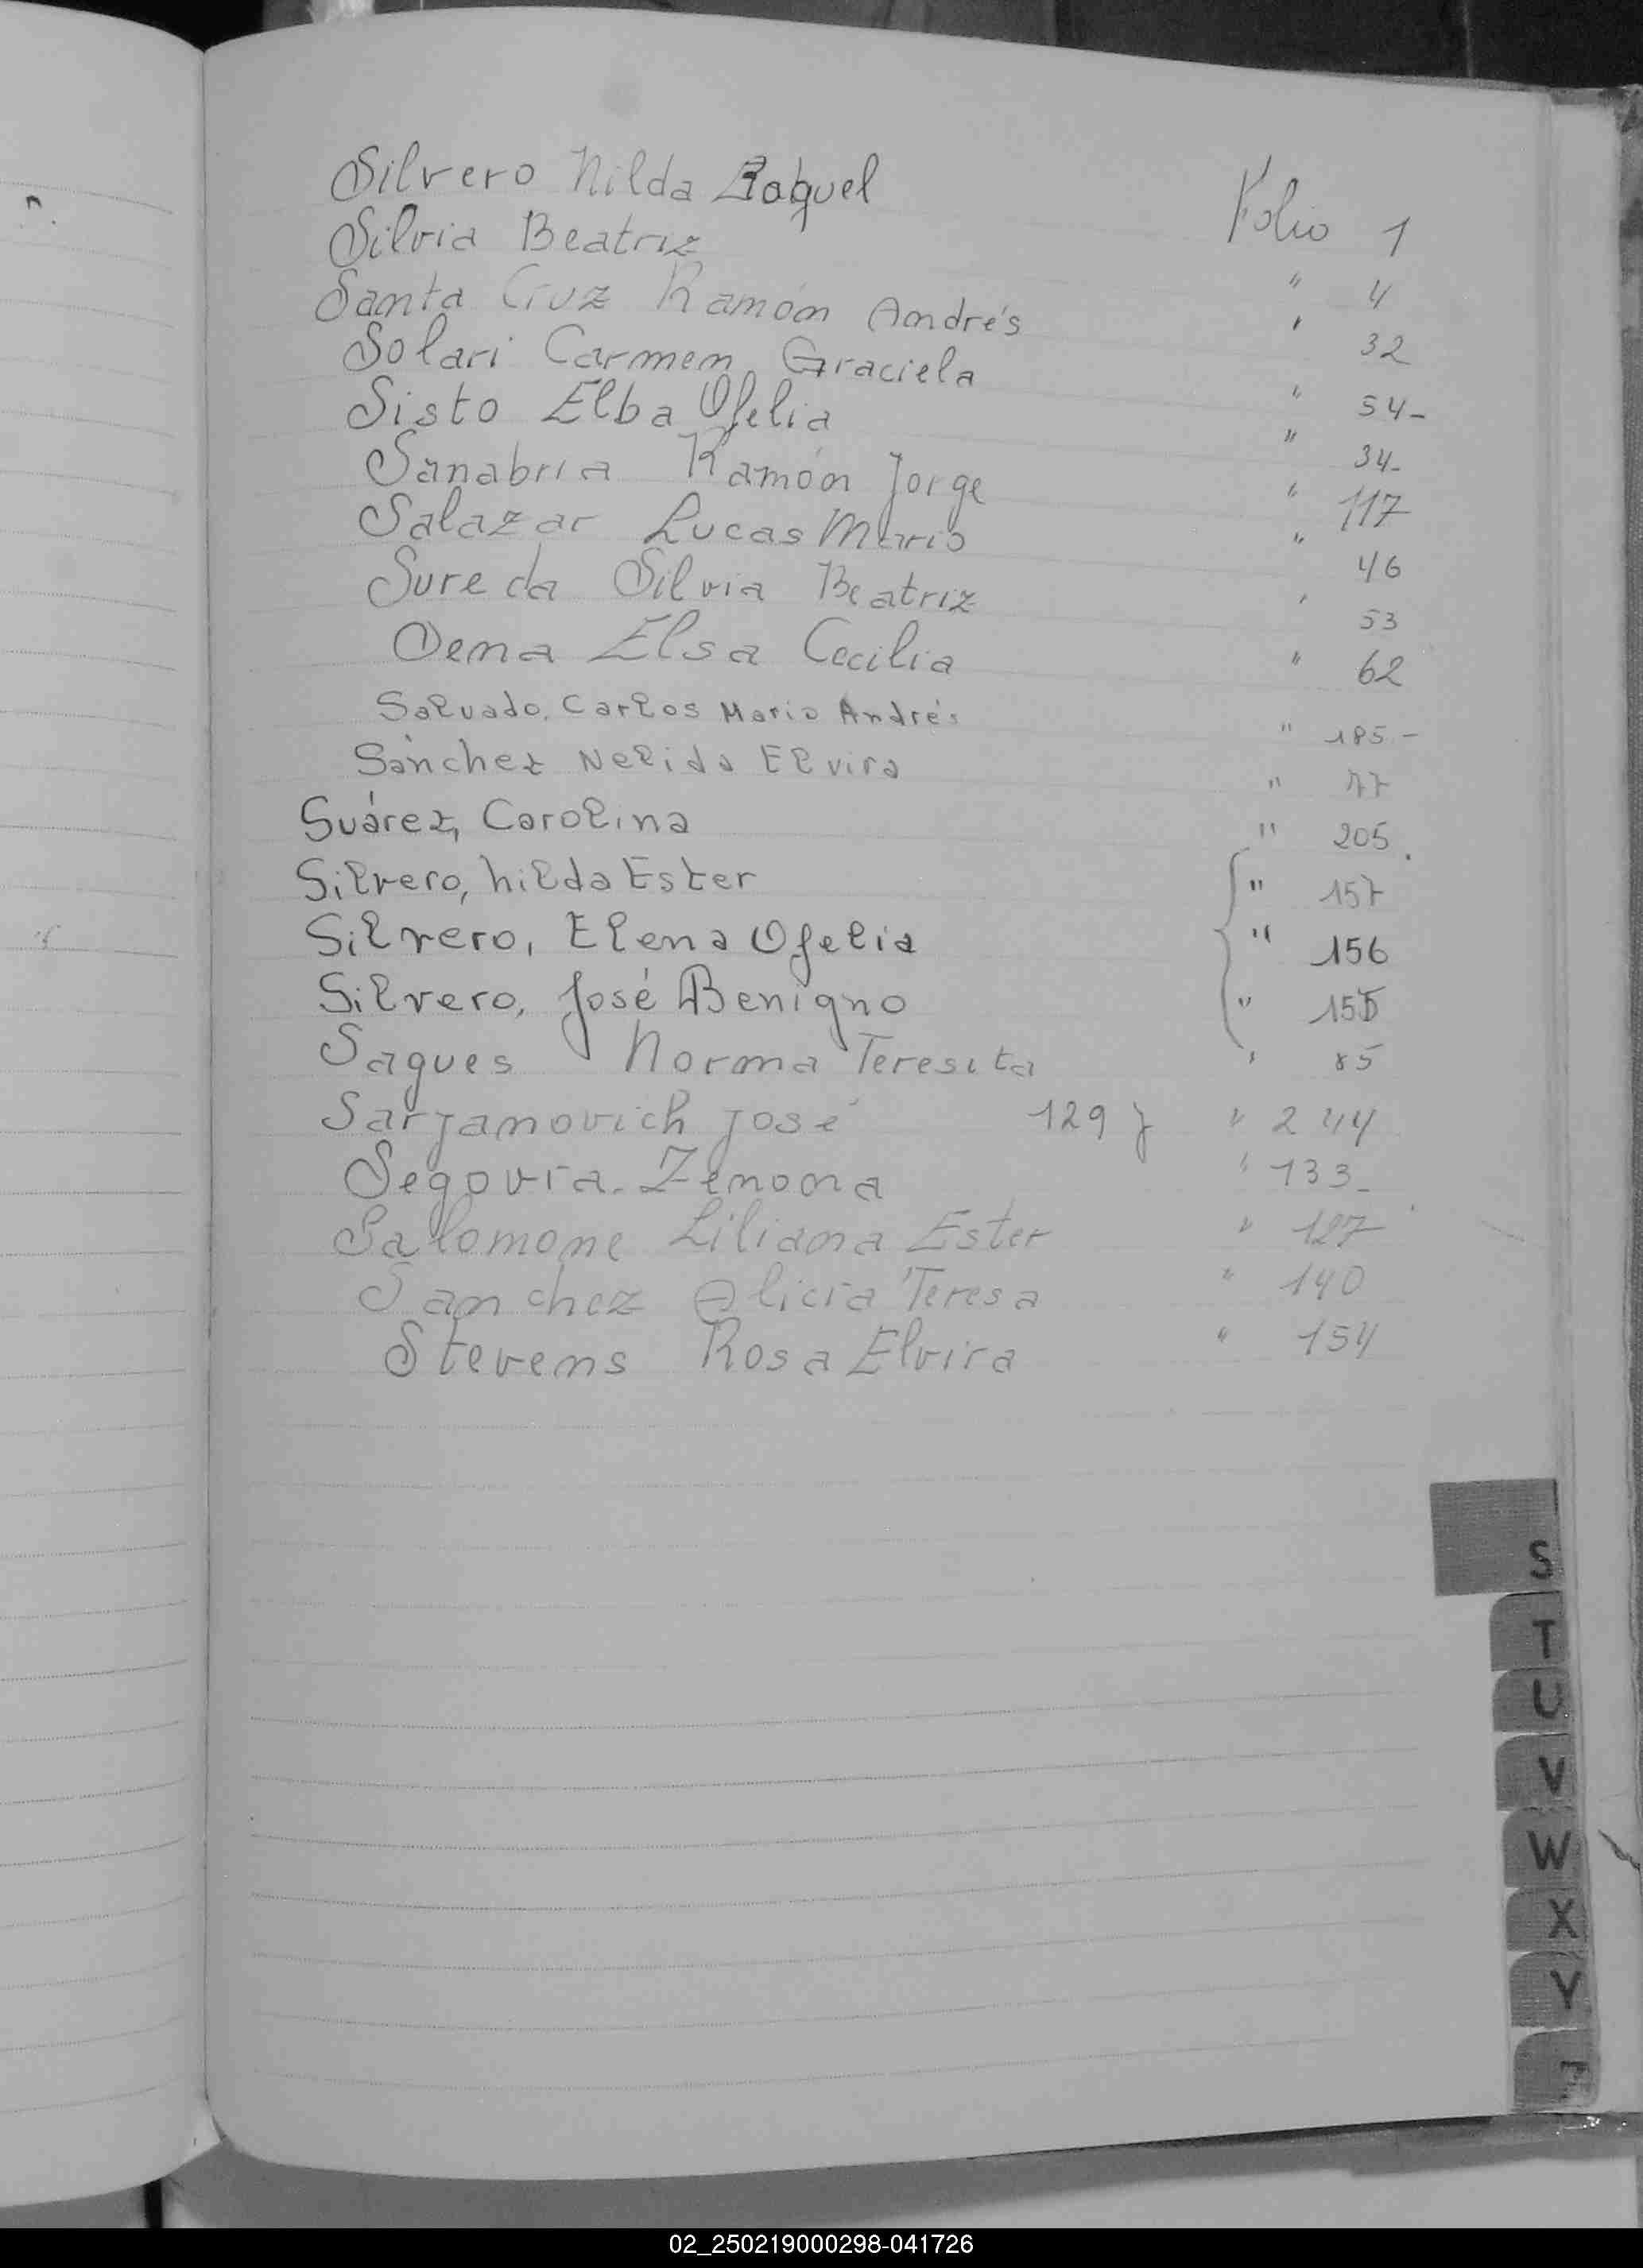 Silvero Nilda Raquel Folio 1
Silvia Beatriz " 4
Santa Cruz Ramón Andrés " 32
Solari Carmen Graciela " 54-
Sisto Elba Ofelia " 34-
Sanabria Ramón Jorge " 117
Salazar Lucas Mario " 46
Sureda Silvia Beatriz " 53
Sena Elsa Cecilia " 62
Salvado, Carlos Mario Andrés " 185-
Sánchez Nelida Elvira " 77
Suárez, Carolina " 205.
Silvero, hilda Ester " 157
Silvero, Elena Ofelia " 156
Silvero, José Benigno " 155
Sagues Norma Teresita " 85
Sarjanovich José 129 } " 244
Segovia. Zenona " 133-
Salomone Liliana Ester " 127
Sanchez Alicia Teresa " 140
Stevens Rosa Elvira " 154
S
T
U
V
W
X
Y
02_250219000298-041726